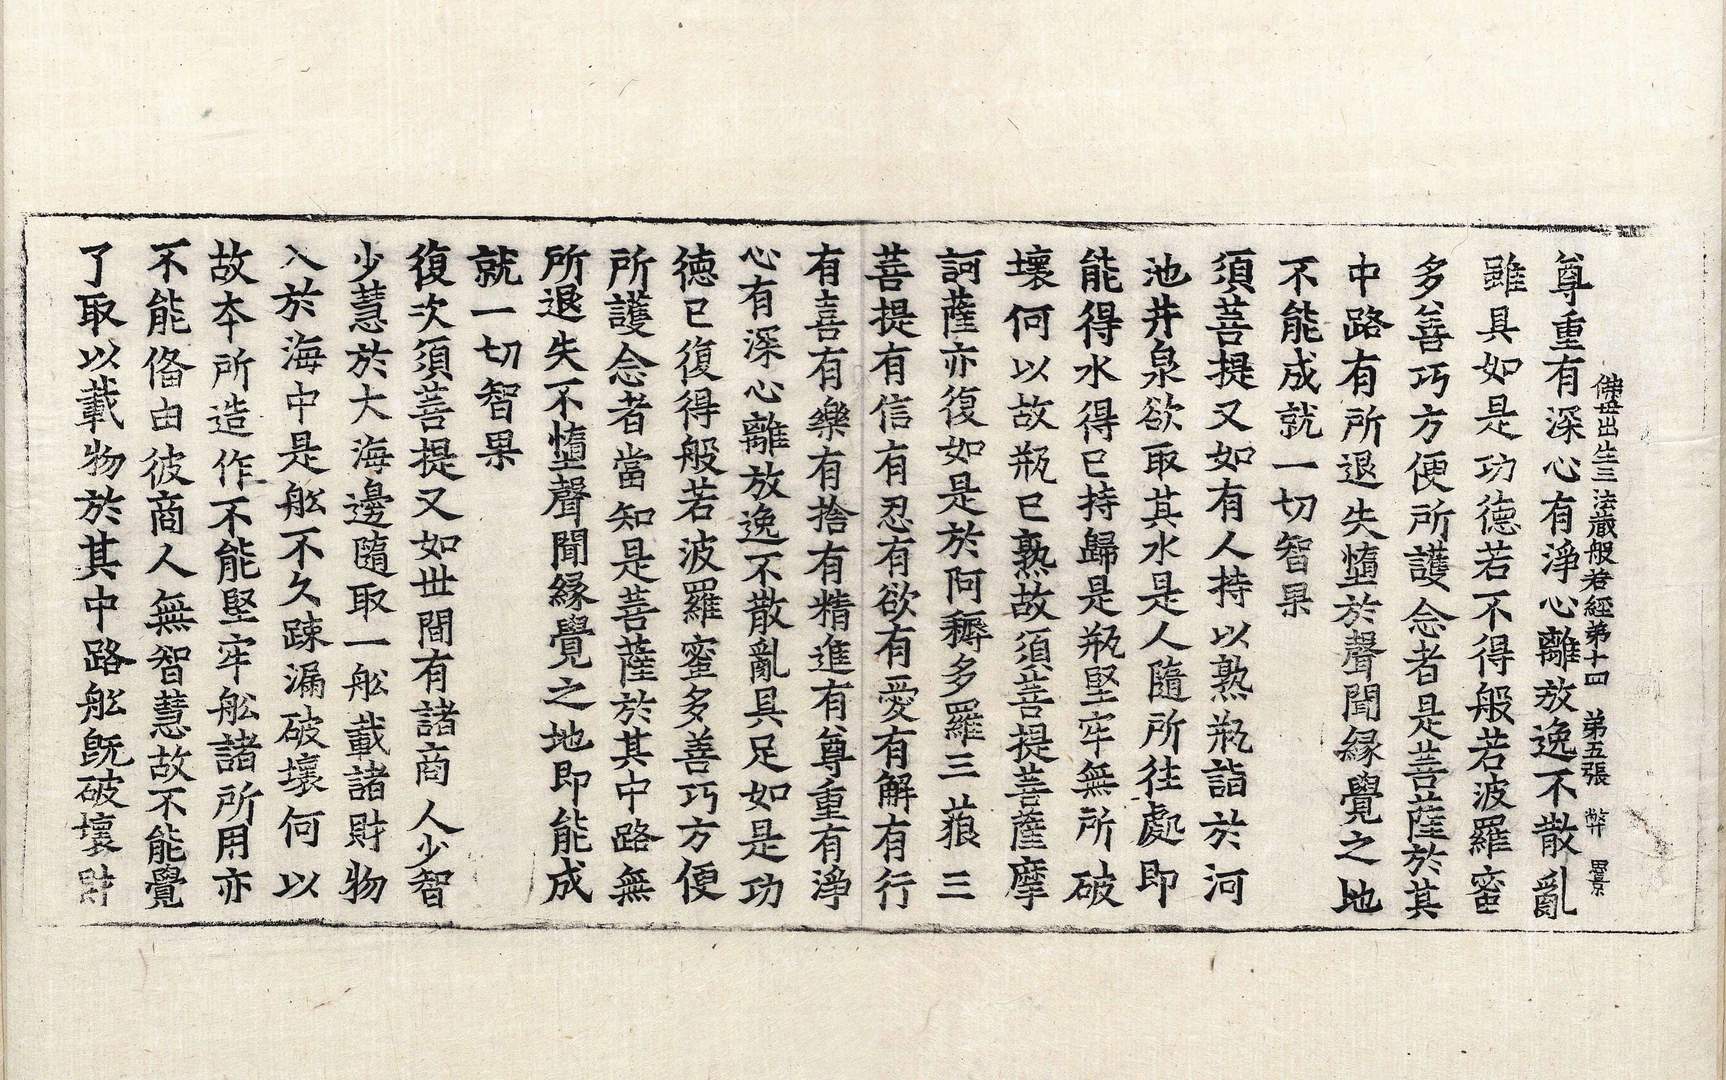 佛母出生三法藏般若經第十四　第五張　弊
尊重有深心有淨心離放逸不散亂
雖具如是功德若不得般若波羅蜜
多善巧方便所護念者是菩薩於其
中路有所退失墮於聲聞緣覺之地
不能成就一切智果
須菩提又如有人持以熟瓶詣於河
池井泉欲取其水是人隨所往處即
能得水得已持歸是瓶堅牢無所破
壞何以故瓶已熟故須菩提菩薩摩
訶薩亦復如是於阿耨多羅三藐三
菩提有信有忍有欲有愛有解有行
有喜有樂有捨有精進有尊重有淨
心有深心離放逸不散亂具足如是功
德已復得般若波羅蜜多善巧方便
所護念者當知是菩薩於其中路無
所退失不墮聲聞緣覺之地即能成
就一切智果
復次須菩提又如世間有諸商人少智
少慧於大海邊隨取一舩載諸財物
入於海中是舩不久踈漏破壞何以
故本所造作不能堅牢舩諸所用亦
不能俻由彼商人無智慧故不能覺
了取以載物於其中路舩旣破壞財